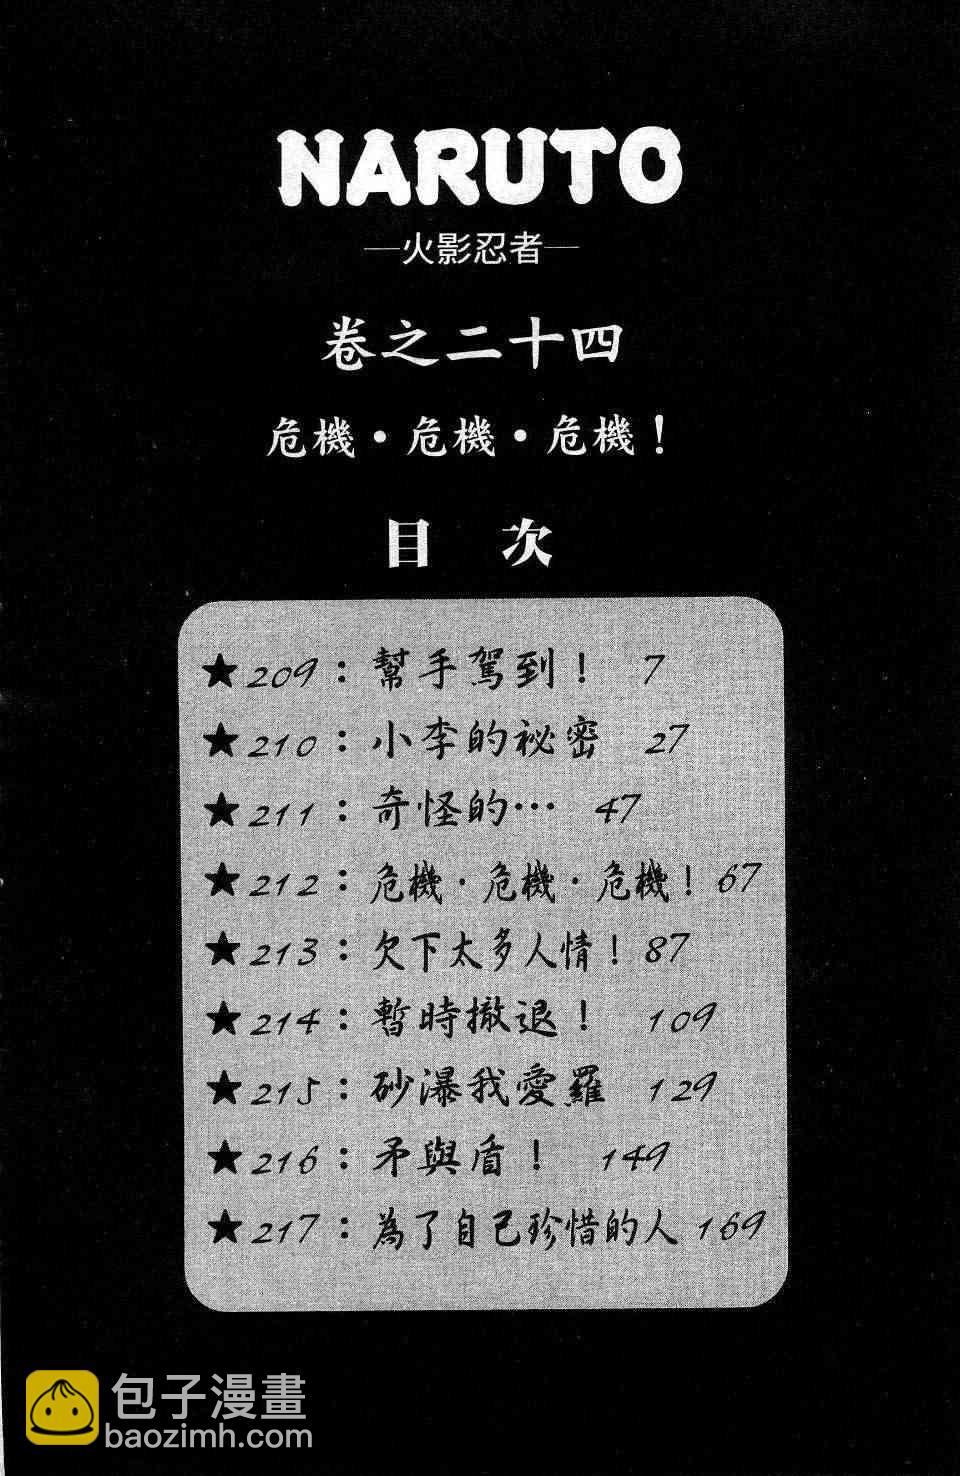 NARUTO
—火影忍者—
卷之二十四
危機・危機・危機！
目 次
★209：幫手駕到！ 7
★210：小李的祕密 27
★211：奇怪的… 47
★212：危機・危機・危機！ 67
★213：欠下太多人情！ 87
★214：暫時撤退！ 109
★215：砂瀑我愛羅 129
★216：矛與盾！ 149
★217：為了自己珍惜的人 169
包子漫畫
baozimh.com